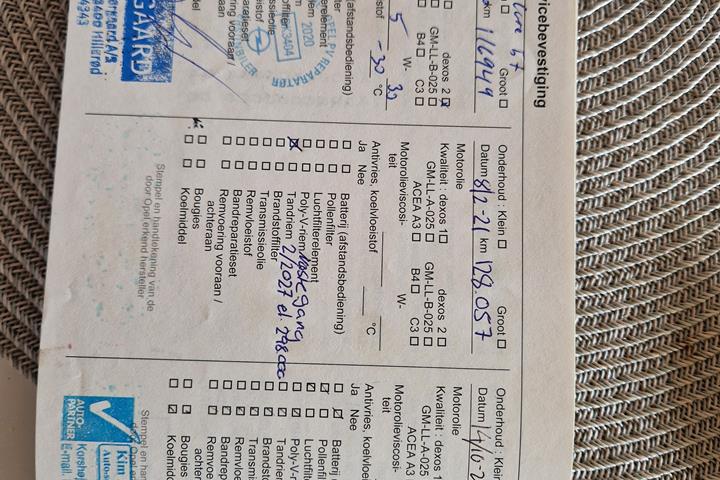 vicebevestiging
Groot
km 116949
dexos 2
GM-LL-B-025
B4 C3
W-
5 -30 °C 30
(afstandsbediening)
2020
K3404
REPARATØR
GAARD
3400 Hillerød
Onderhoud : Klein Groot
Datum 8/2-21 km 128.057
Motorolie
Kwaliteit : dexos 1 dexos 2
GM-LL-A-025 GM-LL-B-025
ACEA A3 B4 C3
Motorolieviscosi- W-
teit
Antivries, koelvloeistof °C
Ja Nee
Batterij (afstandsbediening)
Pollenfilter
Luchtfilterelement
Poly-V-riem Næste gang
Tandriem 2/2027 el. 298.000
Brandstoffilter
Transmissieolie
Remvloeistof
Bandreparatieset
Remvoering vooraan /
achteraan
Bougies
Koelmiddel
Stempel en handtekening van de
door Opel erkend hersteller
Onderhoud : Klein
Datum 1/10-2
Motorolie
Kwaliteit : dexos 1
GM-LL-A-025
ACEA A3
Motorolieviscosi-
teit
Antivries, koelvloei
Ja Nee
Batterij
Pollenfil
Luchtf
Poly-V-r
Tandrien
Brandsto
Transmi
Remvloe
Bandrep
Remvoe
achtera
Bougies
Koelmidd
Stempel en han
AUTO-
PARTNER
Kim
Auto-
Korshøj
E-mail.